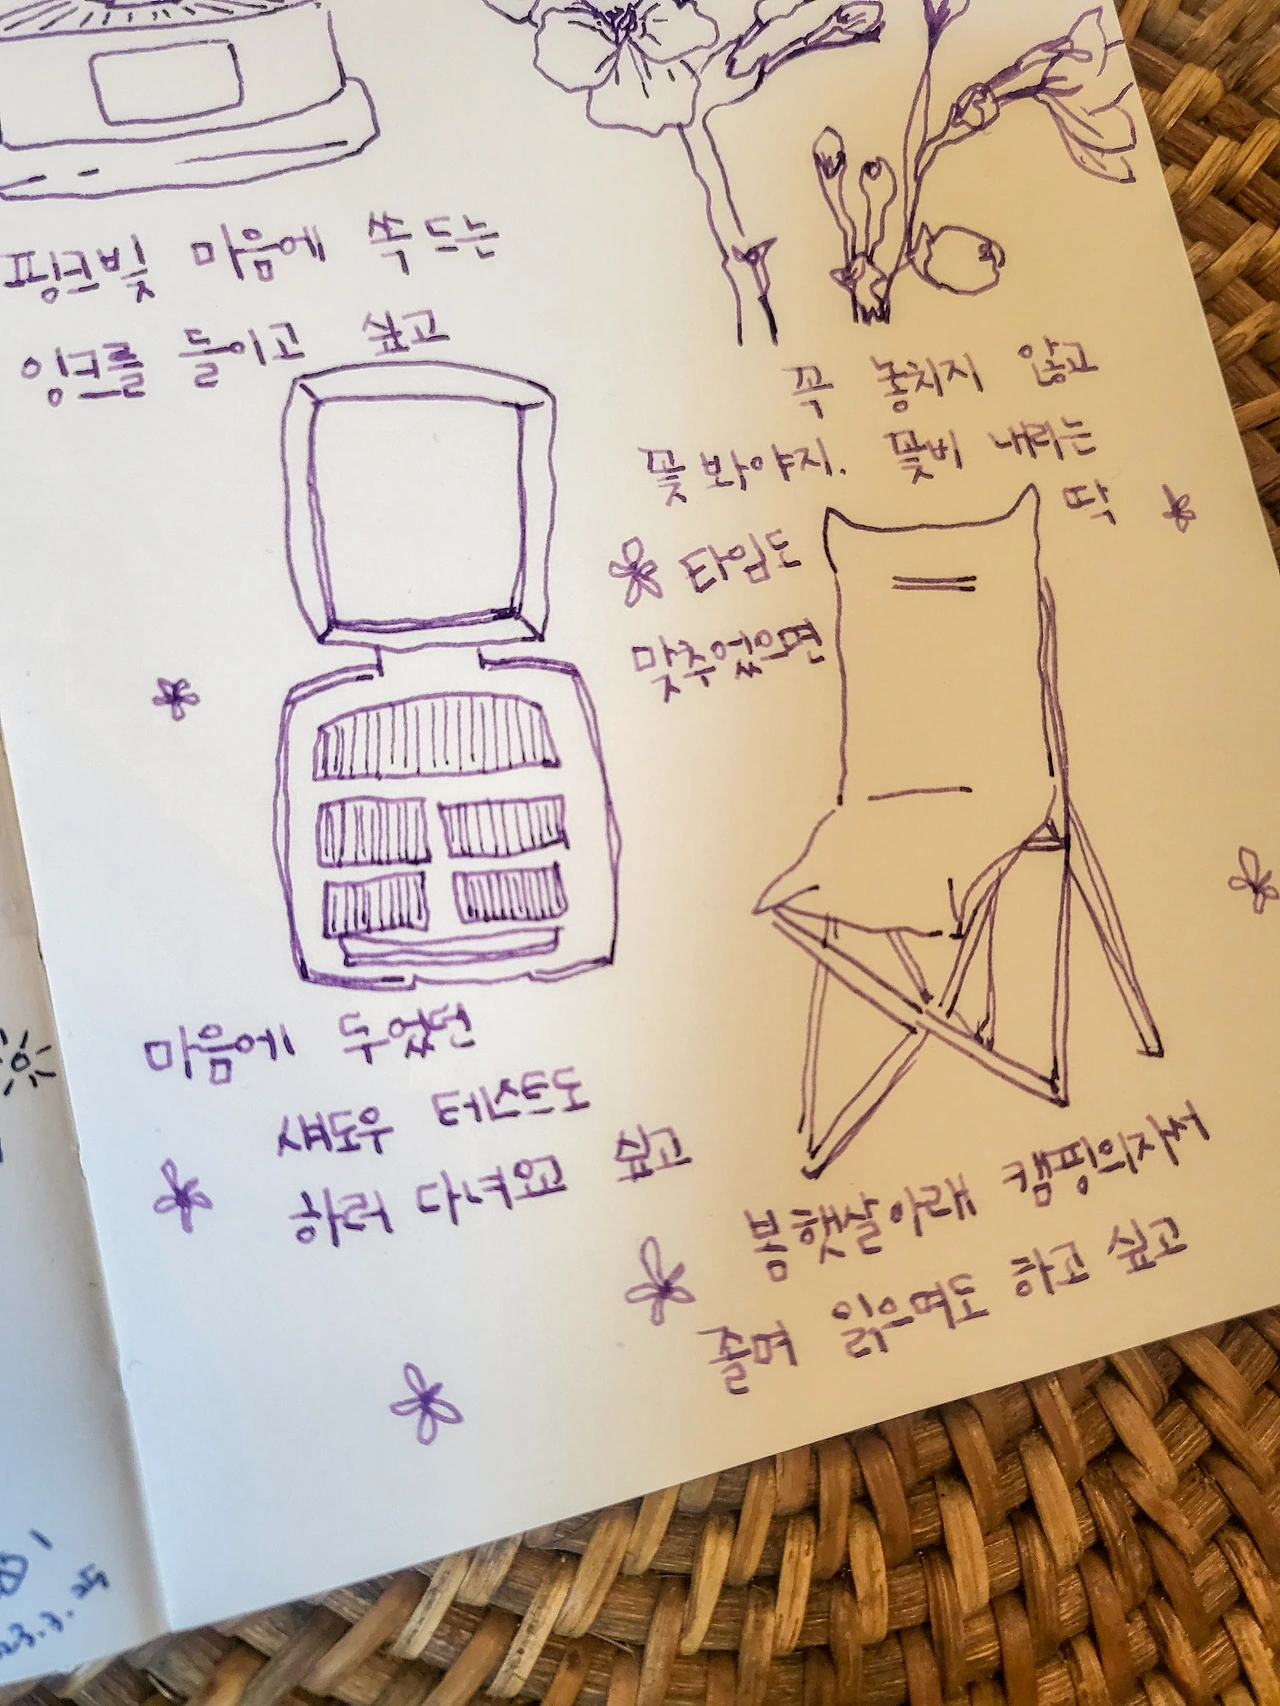 핑크빛 마음에 쏙 드는
잉크를 들이고 싶고
꼭 놓치지 않고
꽃 봐야지. 꽃비 내리는
타임도 딱
맞추었으면
마음에 두었던
섀도우 테스트도
하러 다녀오고 싶고
봄 햇살 아래 캠핑의자써
졸며 읽으며도 하고 싶고
23.3.25